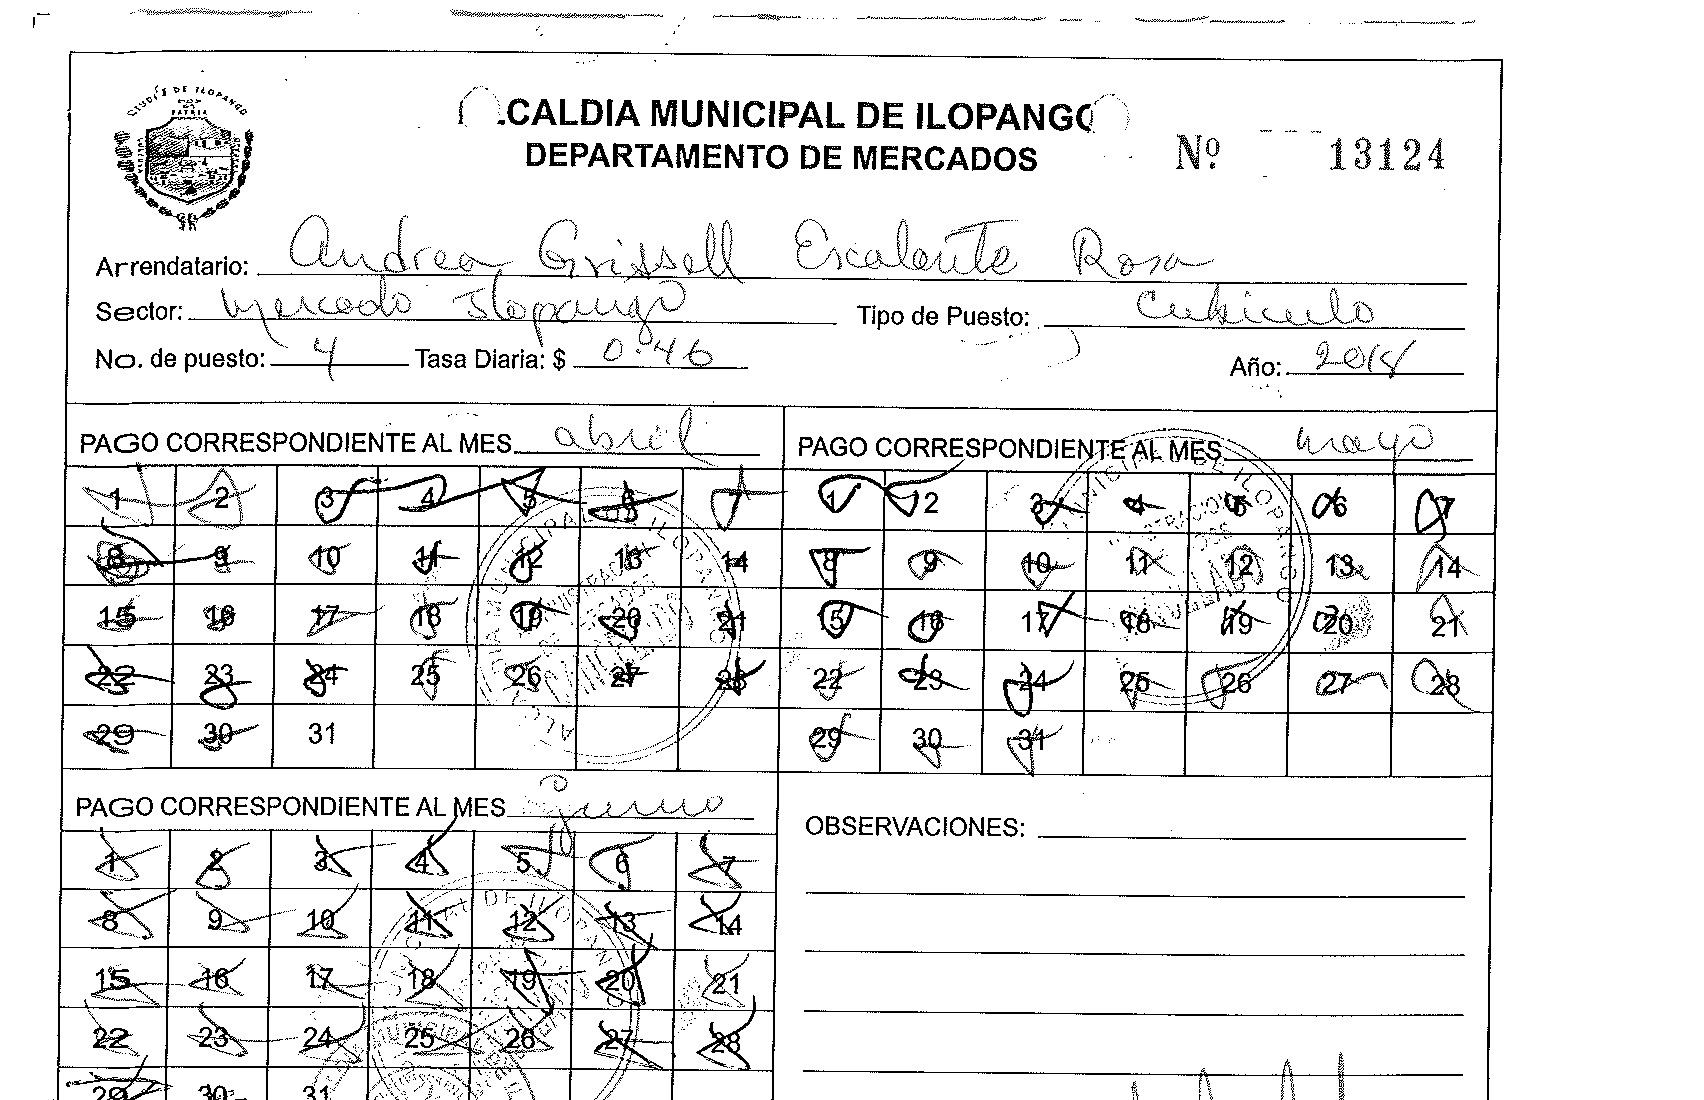 CALDIA MUNICIPAL DE ILOPANGO
DEPARTAMENTO DE MERCADOS
Nº 13124
Arrendatario: Andrea Grissell Escalante Rosa
Sector: Mercado Ilopango Tipo de Puesto: Cubiculo
No. de puesto: 4 Tasa Diaria: $ 0.46 Año: 2018
PAGO CORRESPONDIENTE AL MES abril
1 2 3 4 5 6 7
8 9 10 11 12 13 14
15 16 17 18 19 20 21
22 23 24 25 26 27 28
29 30 31
PAGO CORRESPONDIENTE AL MES mayo
1 2 3 4 5 6 7
8 9 10 11 12 13 14
15 16 17 18 19 20 21
22 23 24 25 26 27 28
29 30 31
PAGO CORRESPONDIENTE AL MES junio
1 2 3 4 5 6 7
8 9 10 11 12 13 14
15 16 17 18 19 20 21
22 23 24 25 26 27 28
29 30 31
OBSERVACIONES: